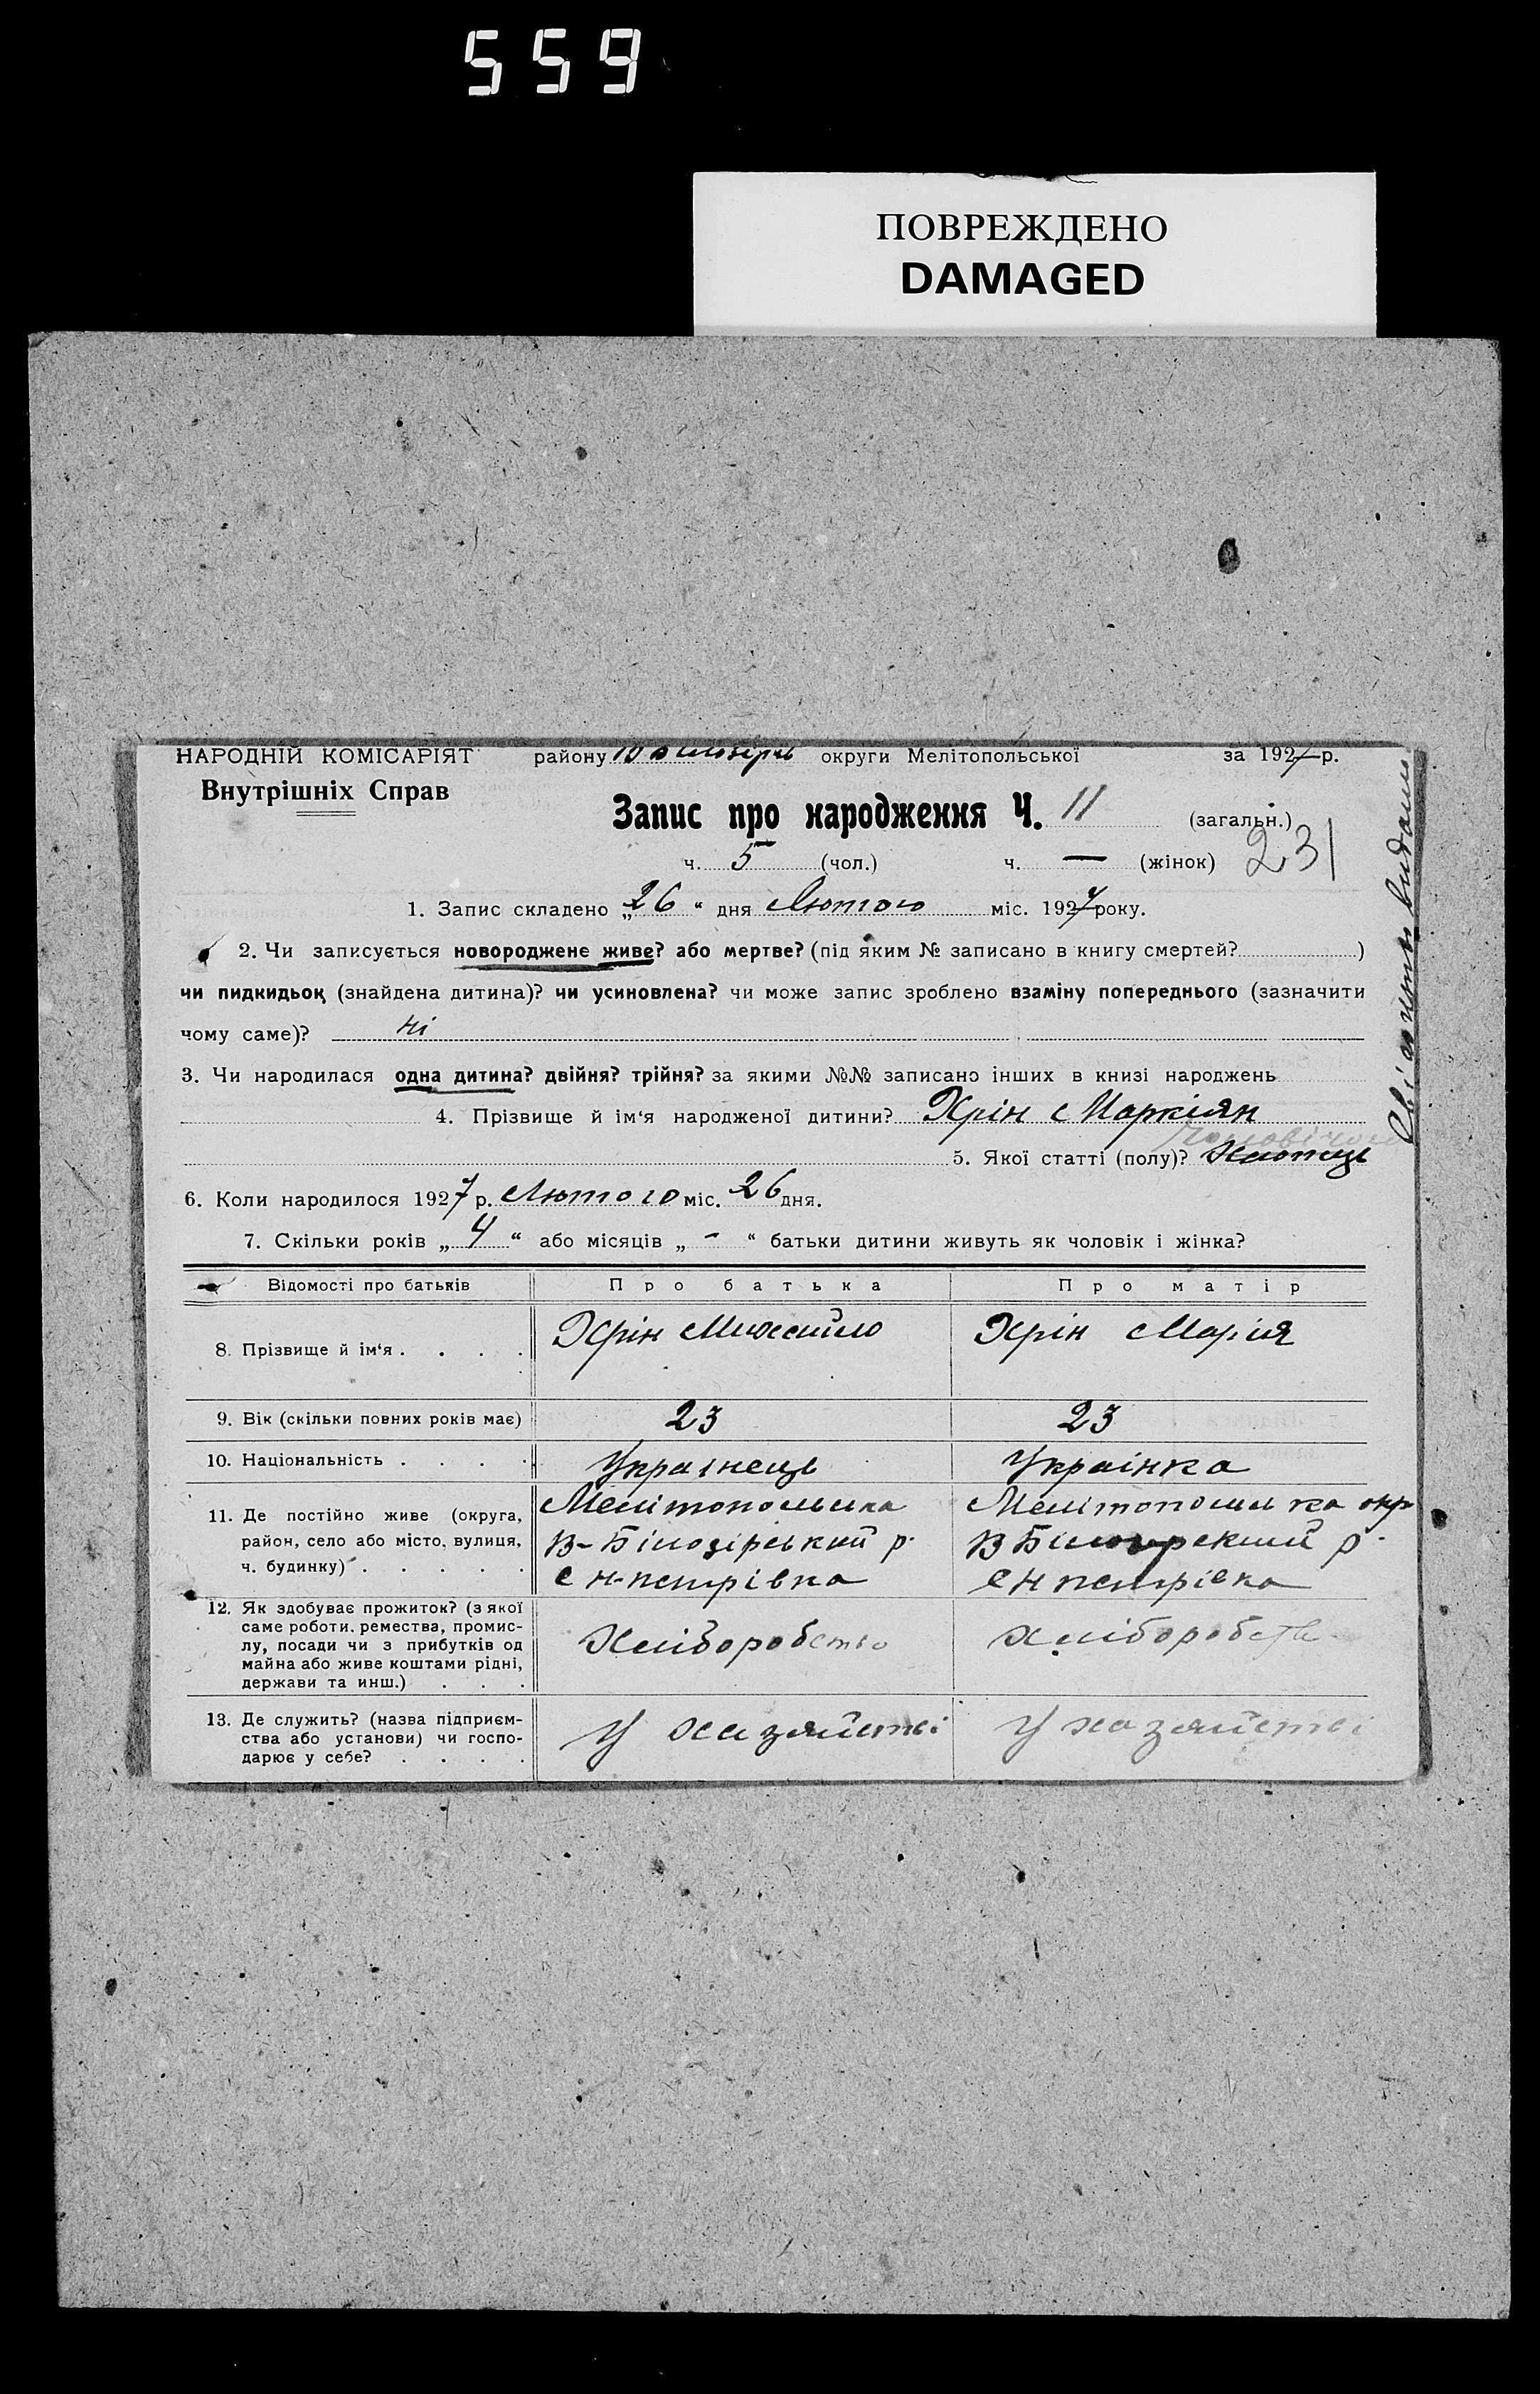 559
ПОВРЕЖДЕНО
DAMAGED
НАРОДНІЙ КОМІСАРІЯТ району округи Мелітопольської за 1927 р.
Внутрішніх Справ
Запис про народження Ч. 11 (загальн.)
ч. 5 (чол.) ч. — (жінок) 231
1. Запис складено „26“ дня Лютого міс. 1927 року.
2. Чи записується новороджене живе? або мертве? (під яким № записано в книгу смертей? )
чи пидкидьок (знайдена дитина)? чи усиновлена? чи може запис зроблено взаміну попереднього (зазначити
чому саме)? ні
3. Чи народилася одна дитина? двійня? трійня? за якими №№ записано інших в книзі народжень
4. Прізвище й ім‘я народженої дитини? Хрін Маркіян
5. Якої статті (полу)? Хлопець
6. Коли народилося 1927 р. Лютого міс. 26 дня.
7. Скільки років „4“ або місяців „-“ батьки дитини живуть як чоловік і жінка?
Відомості про батьків Про батька Про матір
8. Прізвище й ім‘я . . . . Хрін Михайло Хрін Марія
9. Вік (скільки повних років має) 23 23
10. Національність . . . . Украінець Украінка
11. Де постійно живе (округа, Мелітопольська Мелітопольська окр
район, село або місто, вулиця, В-Білозірський р. В Білозірский р.
ч. будинку) . . . . . с Н-петрівка с Н петрівка
12. Як здобуває прожиток? (з якої
саме роботи, ремества, промис-
лу, посади чи з прибутків од Хліборобство Хліборобств
майна або живе коштами рідні,
держави та инш.) . . .
13. Де служить? (назва підприєм-
ства або установи) чи госпо- У хазяйстві У хазяйстві
дарює у себе? . . . .